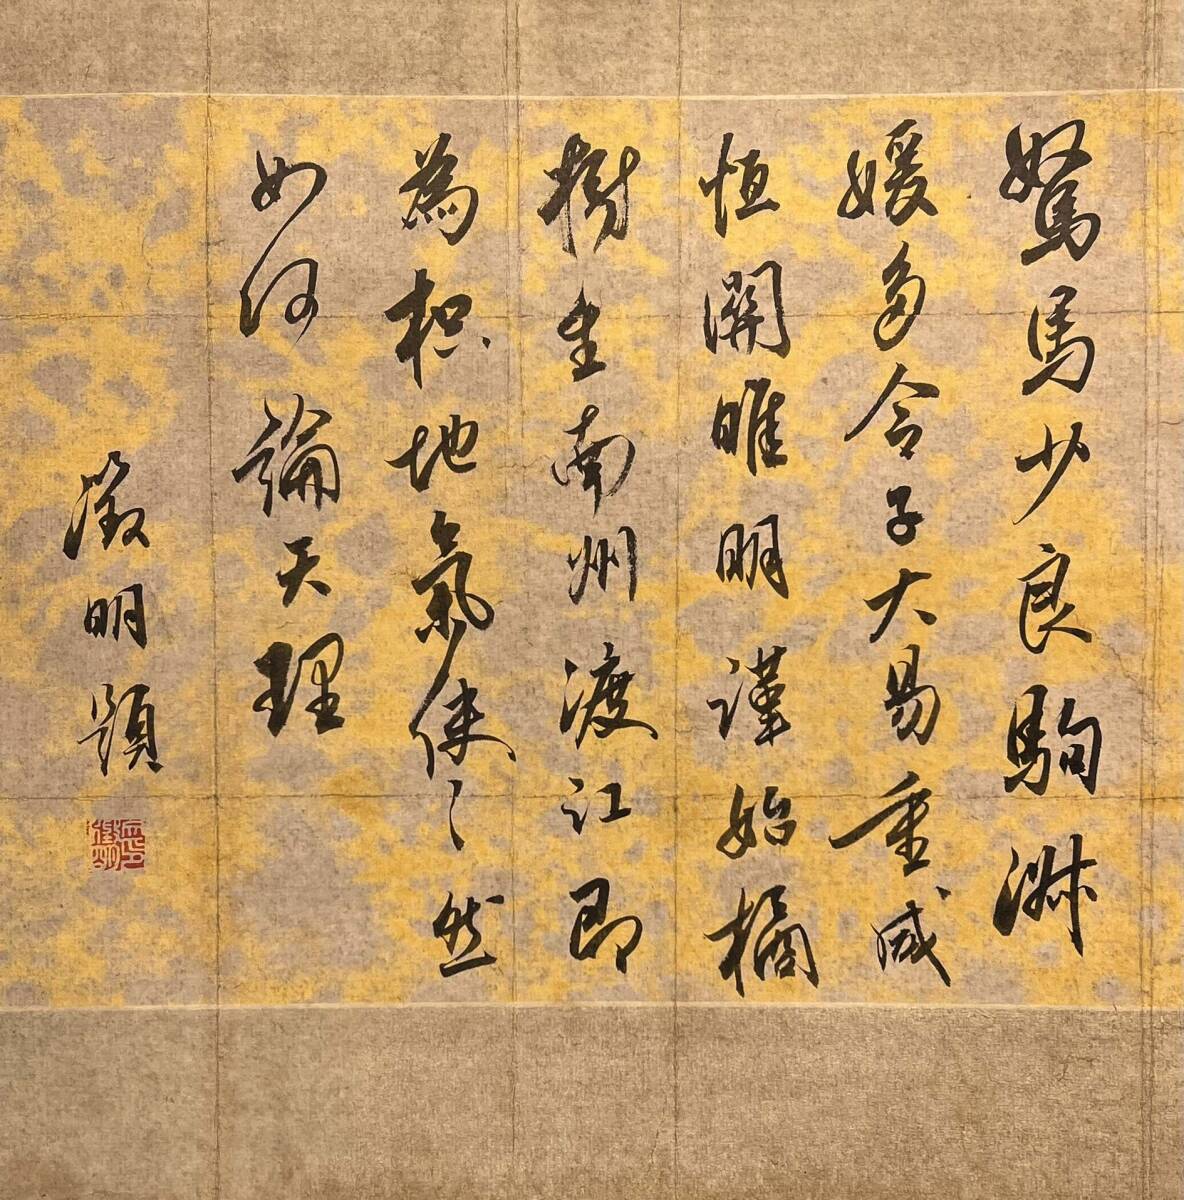 駑馬少良駒淑
媛多令子大易重咸
恒關雎明謹始橘
樹生南州渡江即
為枳地氣使之然
如何論天理
徵明題